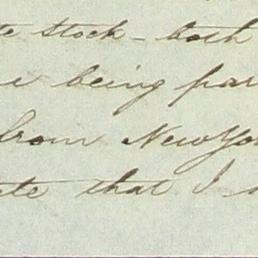 te stock - both
e being par
from New Yo
te that I